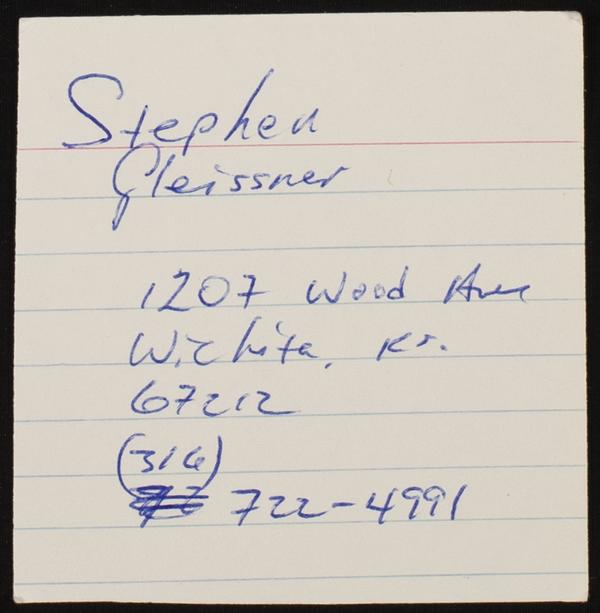 Stephen
Gleissner
1207 Wood Ave
Wichita, Ks.
67212
(316)
722-4991